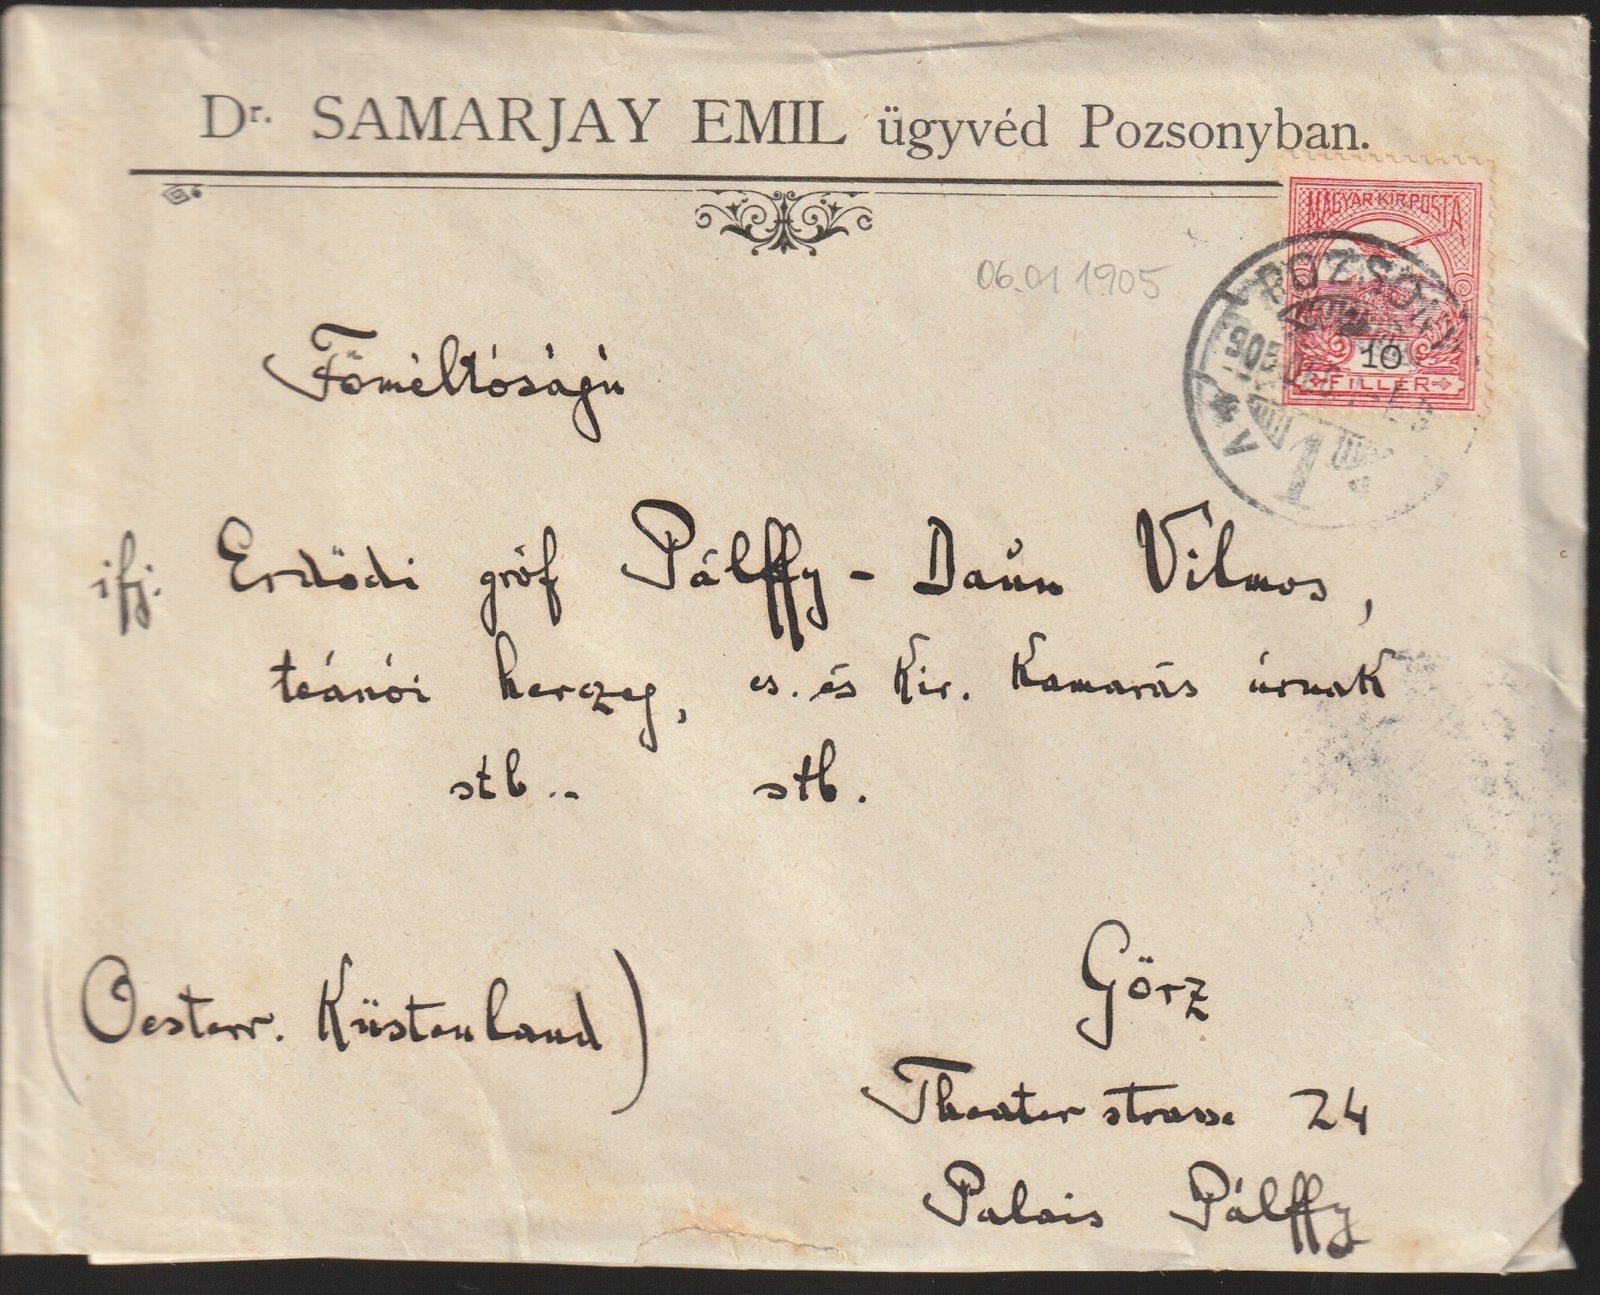 Dr. SAMARJAY EMIL ügyvéd Pozsonyban.
MAGYAR KIR. POSTA
10
FILLER
POZSONY
905
1
06.01 1905
Főméltóságú
ifj. Erdődi gróf Pálffy - Daun Vilmos,
teánói herczeg, cs. és Kir. Kamarás úrnak
stb.. stb.
Görz
(Oesterr. Küstenland)
Theaterstrasse 24
Palais Pálffy